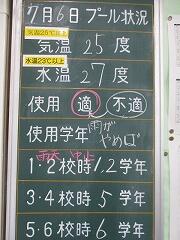 7月6日プール状況
気温25℃以上
気温 25度
水温23℃以上
水温 27度
使用 適 不適
使用学年 雨が
やめば
雨天 中止
1・2校時 1,2学年
3・4校時 5学年
5・6校時 6学年